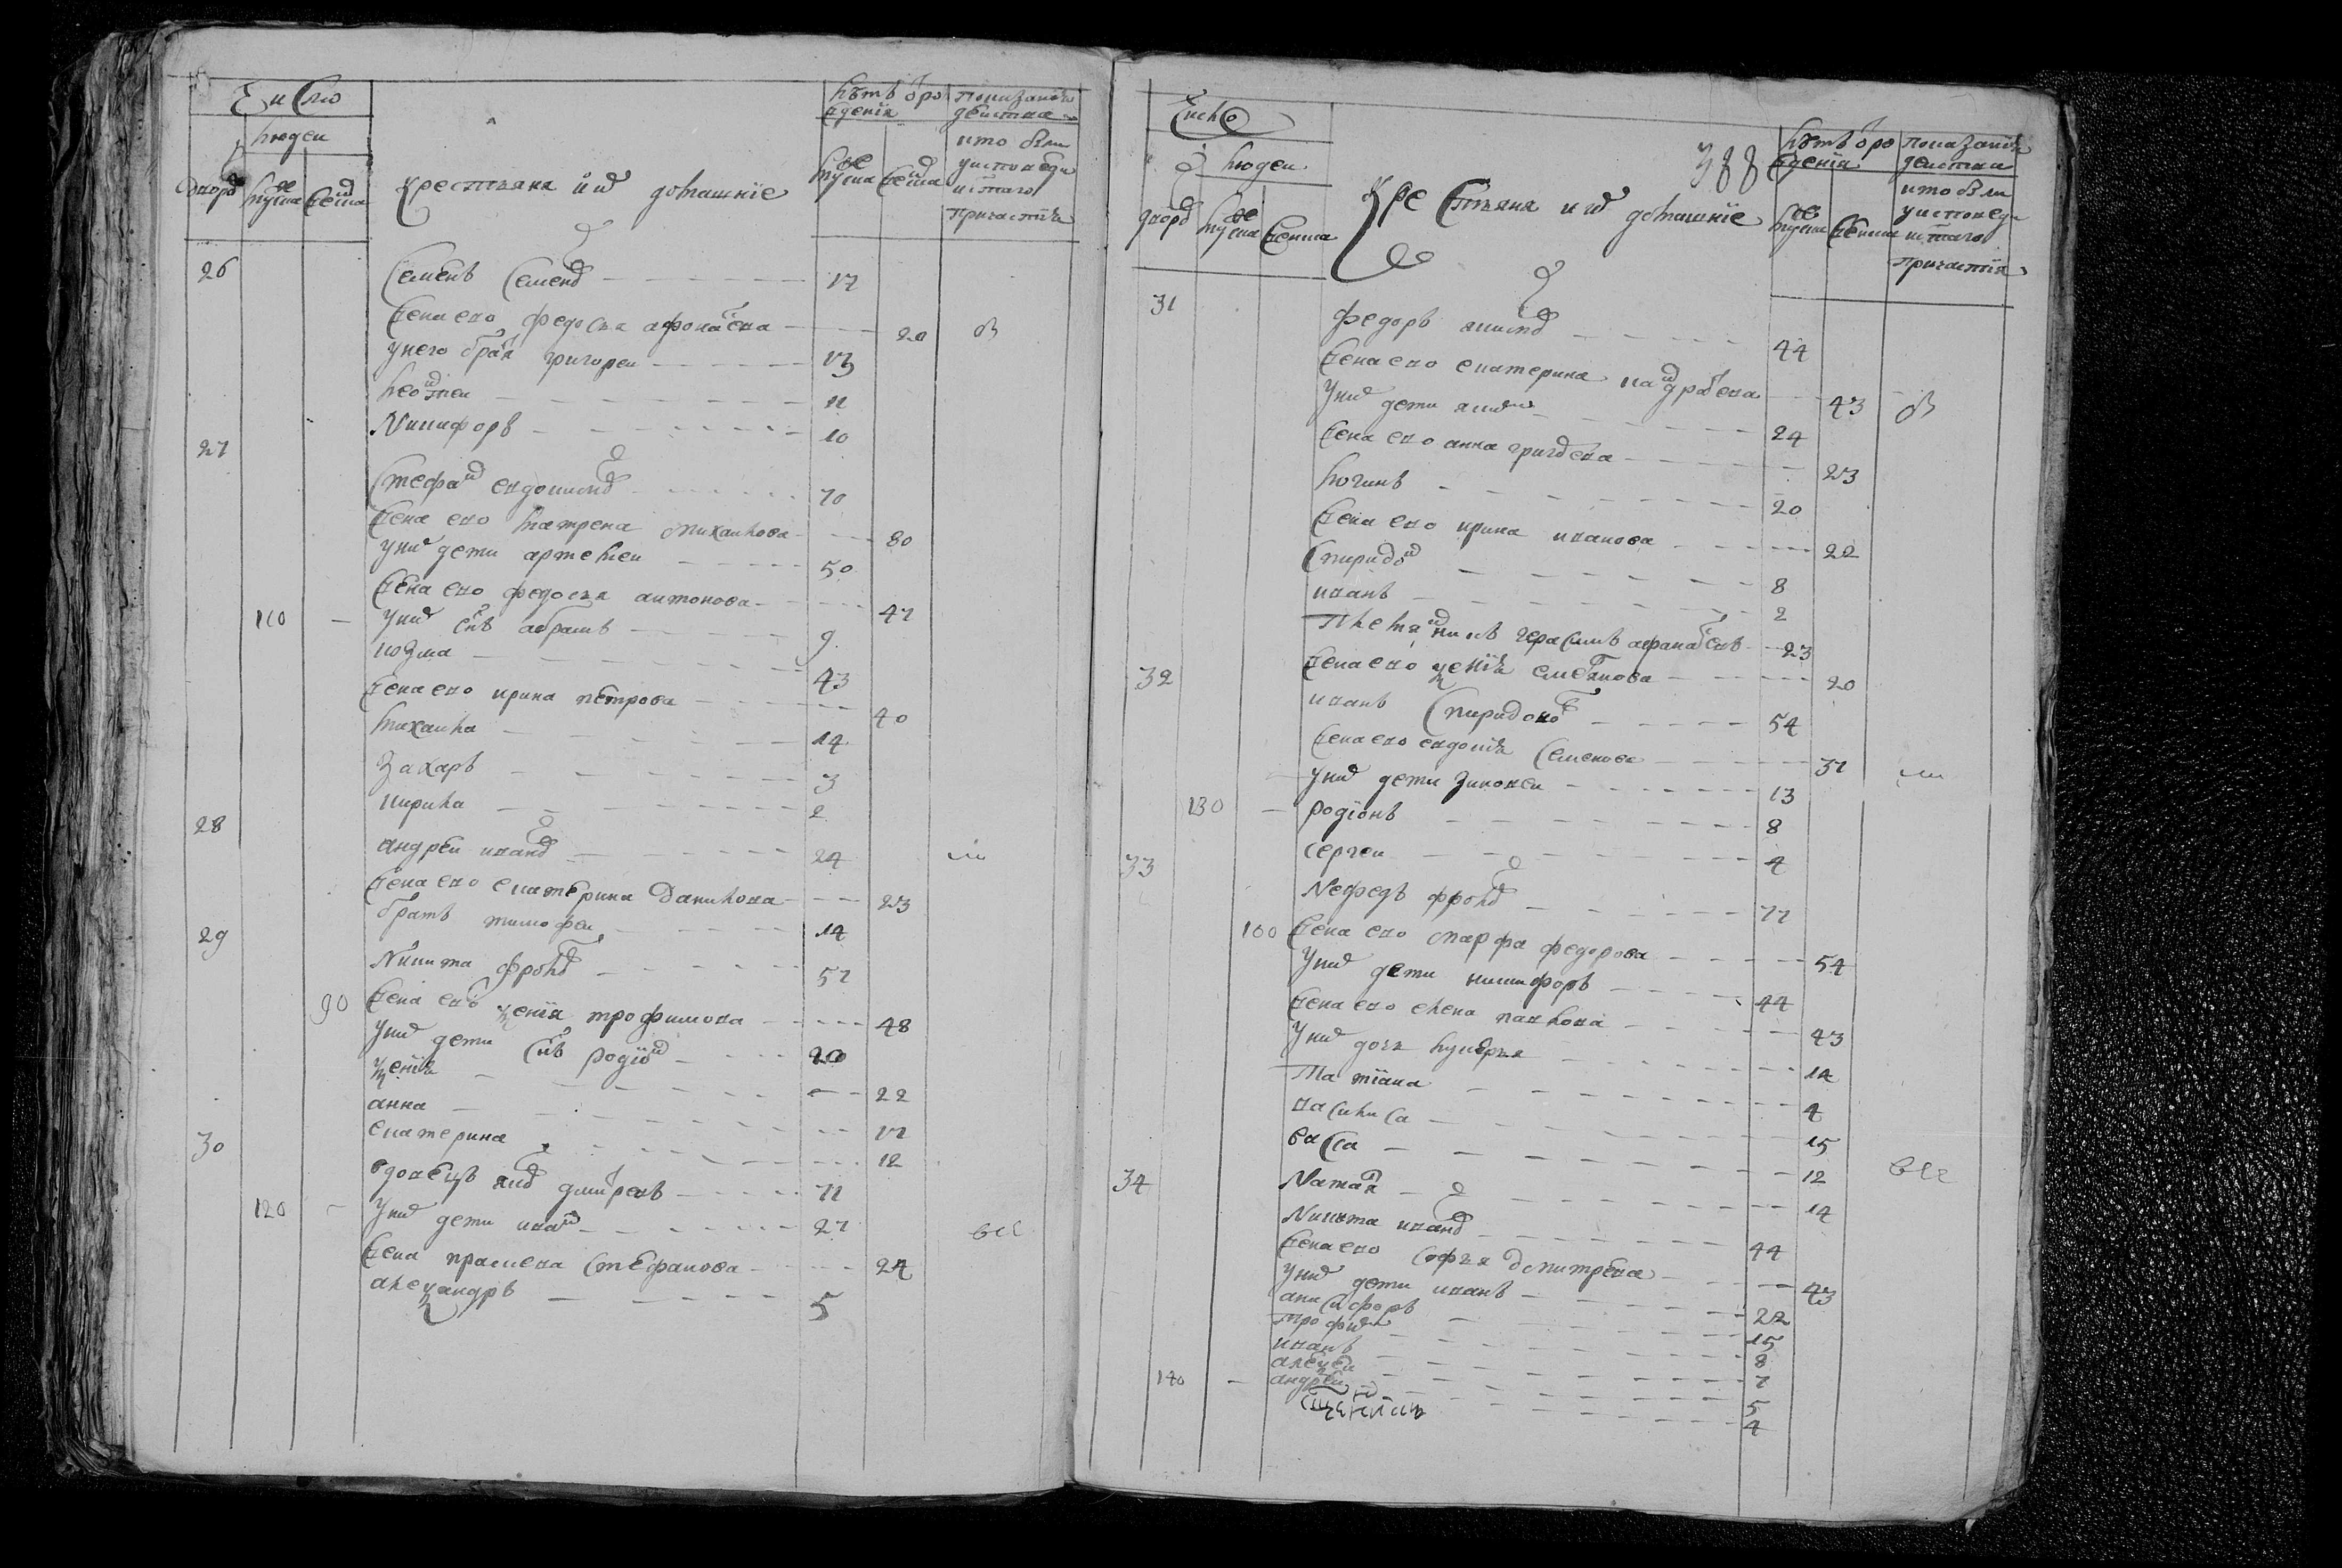 Число
людеи
дворов мужеска женска
крестьяня и их домашние
лѣтъ от рождения
мужеска женска
показание действа кто были у исповеди и с[вя]таго причастия
26 Семенъ Семенов 17
жена ево федосья афонасева 20
у него братя григореи 13
леонтеи 11
Никифоръ 10
27 Стефан евдокимов 70
жена ево матрена михаилова 80
у них дети артемеи 50
жена ево федосья антонова 47
110 у них снъ абрамъ 9
козма 43
жена ево ирина петрова 40
михаила 14
Захаръ 3
кирила 2
28 андреи иванов 24
жена ево екатерина данилова 23
братъ тимофеи 14
29 Никита фролов 57
90 жена ево ксения трофимова 48
у них дети снъ родион 20
ксения 22
анна 17
екатерина 12
30 вдовецъ яков дмитревъ 71
120 у них дети иван 27
жена прасковя стефанова 24
александръ 5
число
людеи
дворов мужеска женска
388
крестьяня и их домашние
лѣтъ от рождения
мужеска женска
показание действа кто были у исповеди и с[вя]таго причастия
31 федоръ никитов 44
жена ево екатерина кандратева 43
у них дети яким 24
жена ево анна григорева 23
логинъ 20
жена ево ирина иванова 22
спиридон 8
иванъ 2
племянникъ герасимъ афанасевъ 23
жена ево ксения 20
32 иванъ спиридонов 54
жена ево евдокия семенова 37
у них дети зиновеи 13
130 родионъ 8
сергеи 4
33 Нефедъ фролов 77
100 жена ево марфа федорова 54
у них дети никифоръ 44
жена ево елена павлова 43
у них дочь лукерья 14
татиана 4
василиса 15
васса 12
Наталя 14
34 Никита иванов 44
жена ево софья дмитрева 43
у них дети иванъ 22
анисифоръ 15
трофим 8
иванъ 7
алексеи 5
140 андреи 4